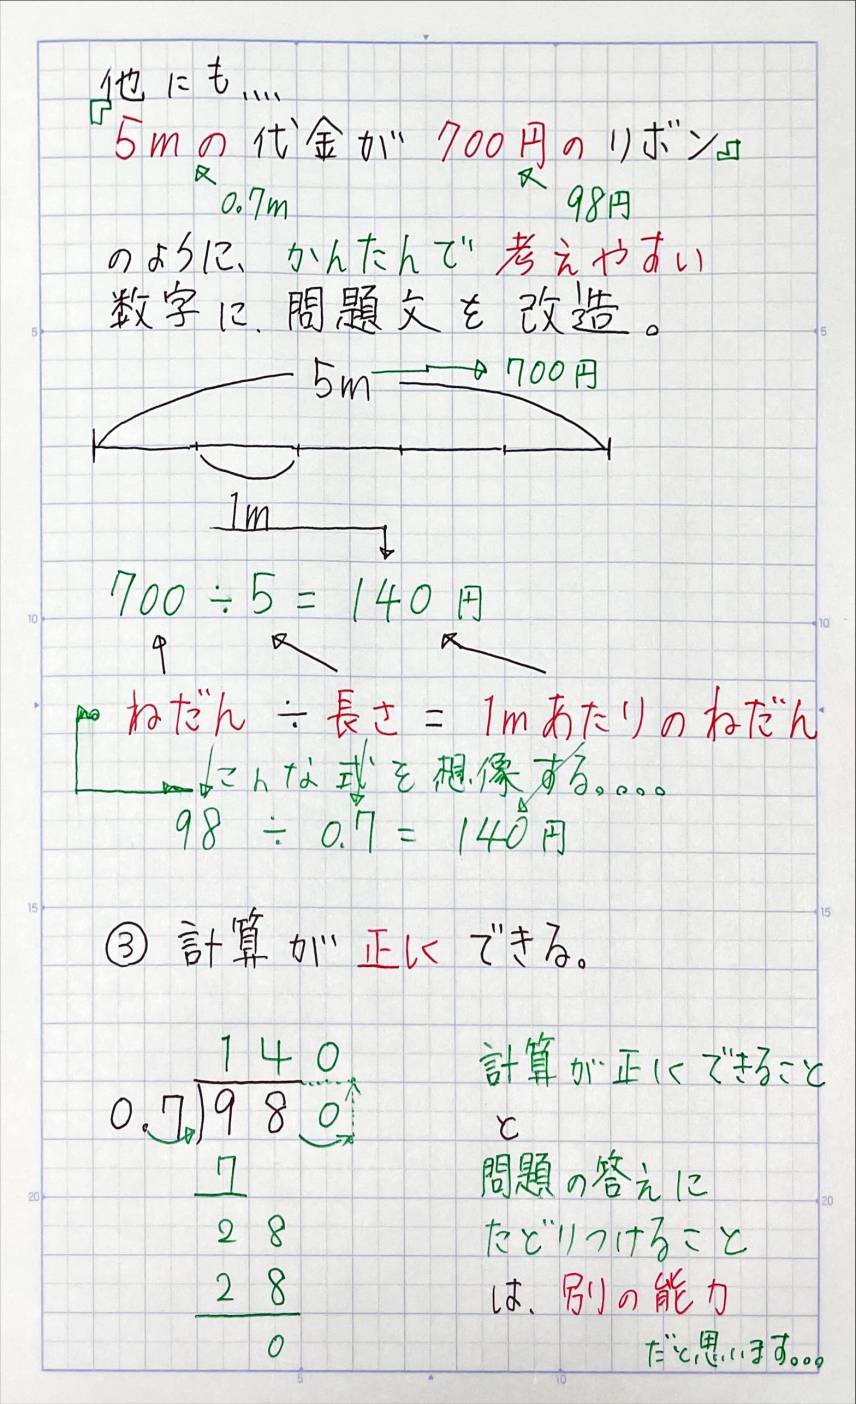 他にも....
『5mの代金が700円のリボン』
0.7m
98円
のように、かんたんで考えやすい
数字に、問題文を改造。
5m 700円
1m
700÷5=140円
ねだん÷長さ=1mあたりのねだん
こんな式を想像する。。。。
98÷0.7=140円
③計算が正しくできる。
140
0.7)980
7
28
28
0
計算が正しくできること
と
問題の答えに
たどりつけること
は、別の能力
だと思います。。。
5
5
10
10
15
15
20
20
5
10